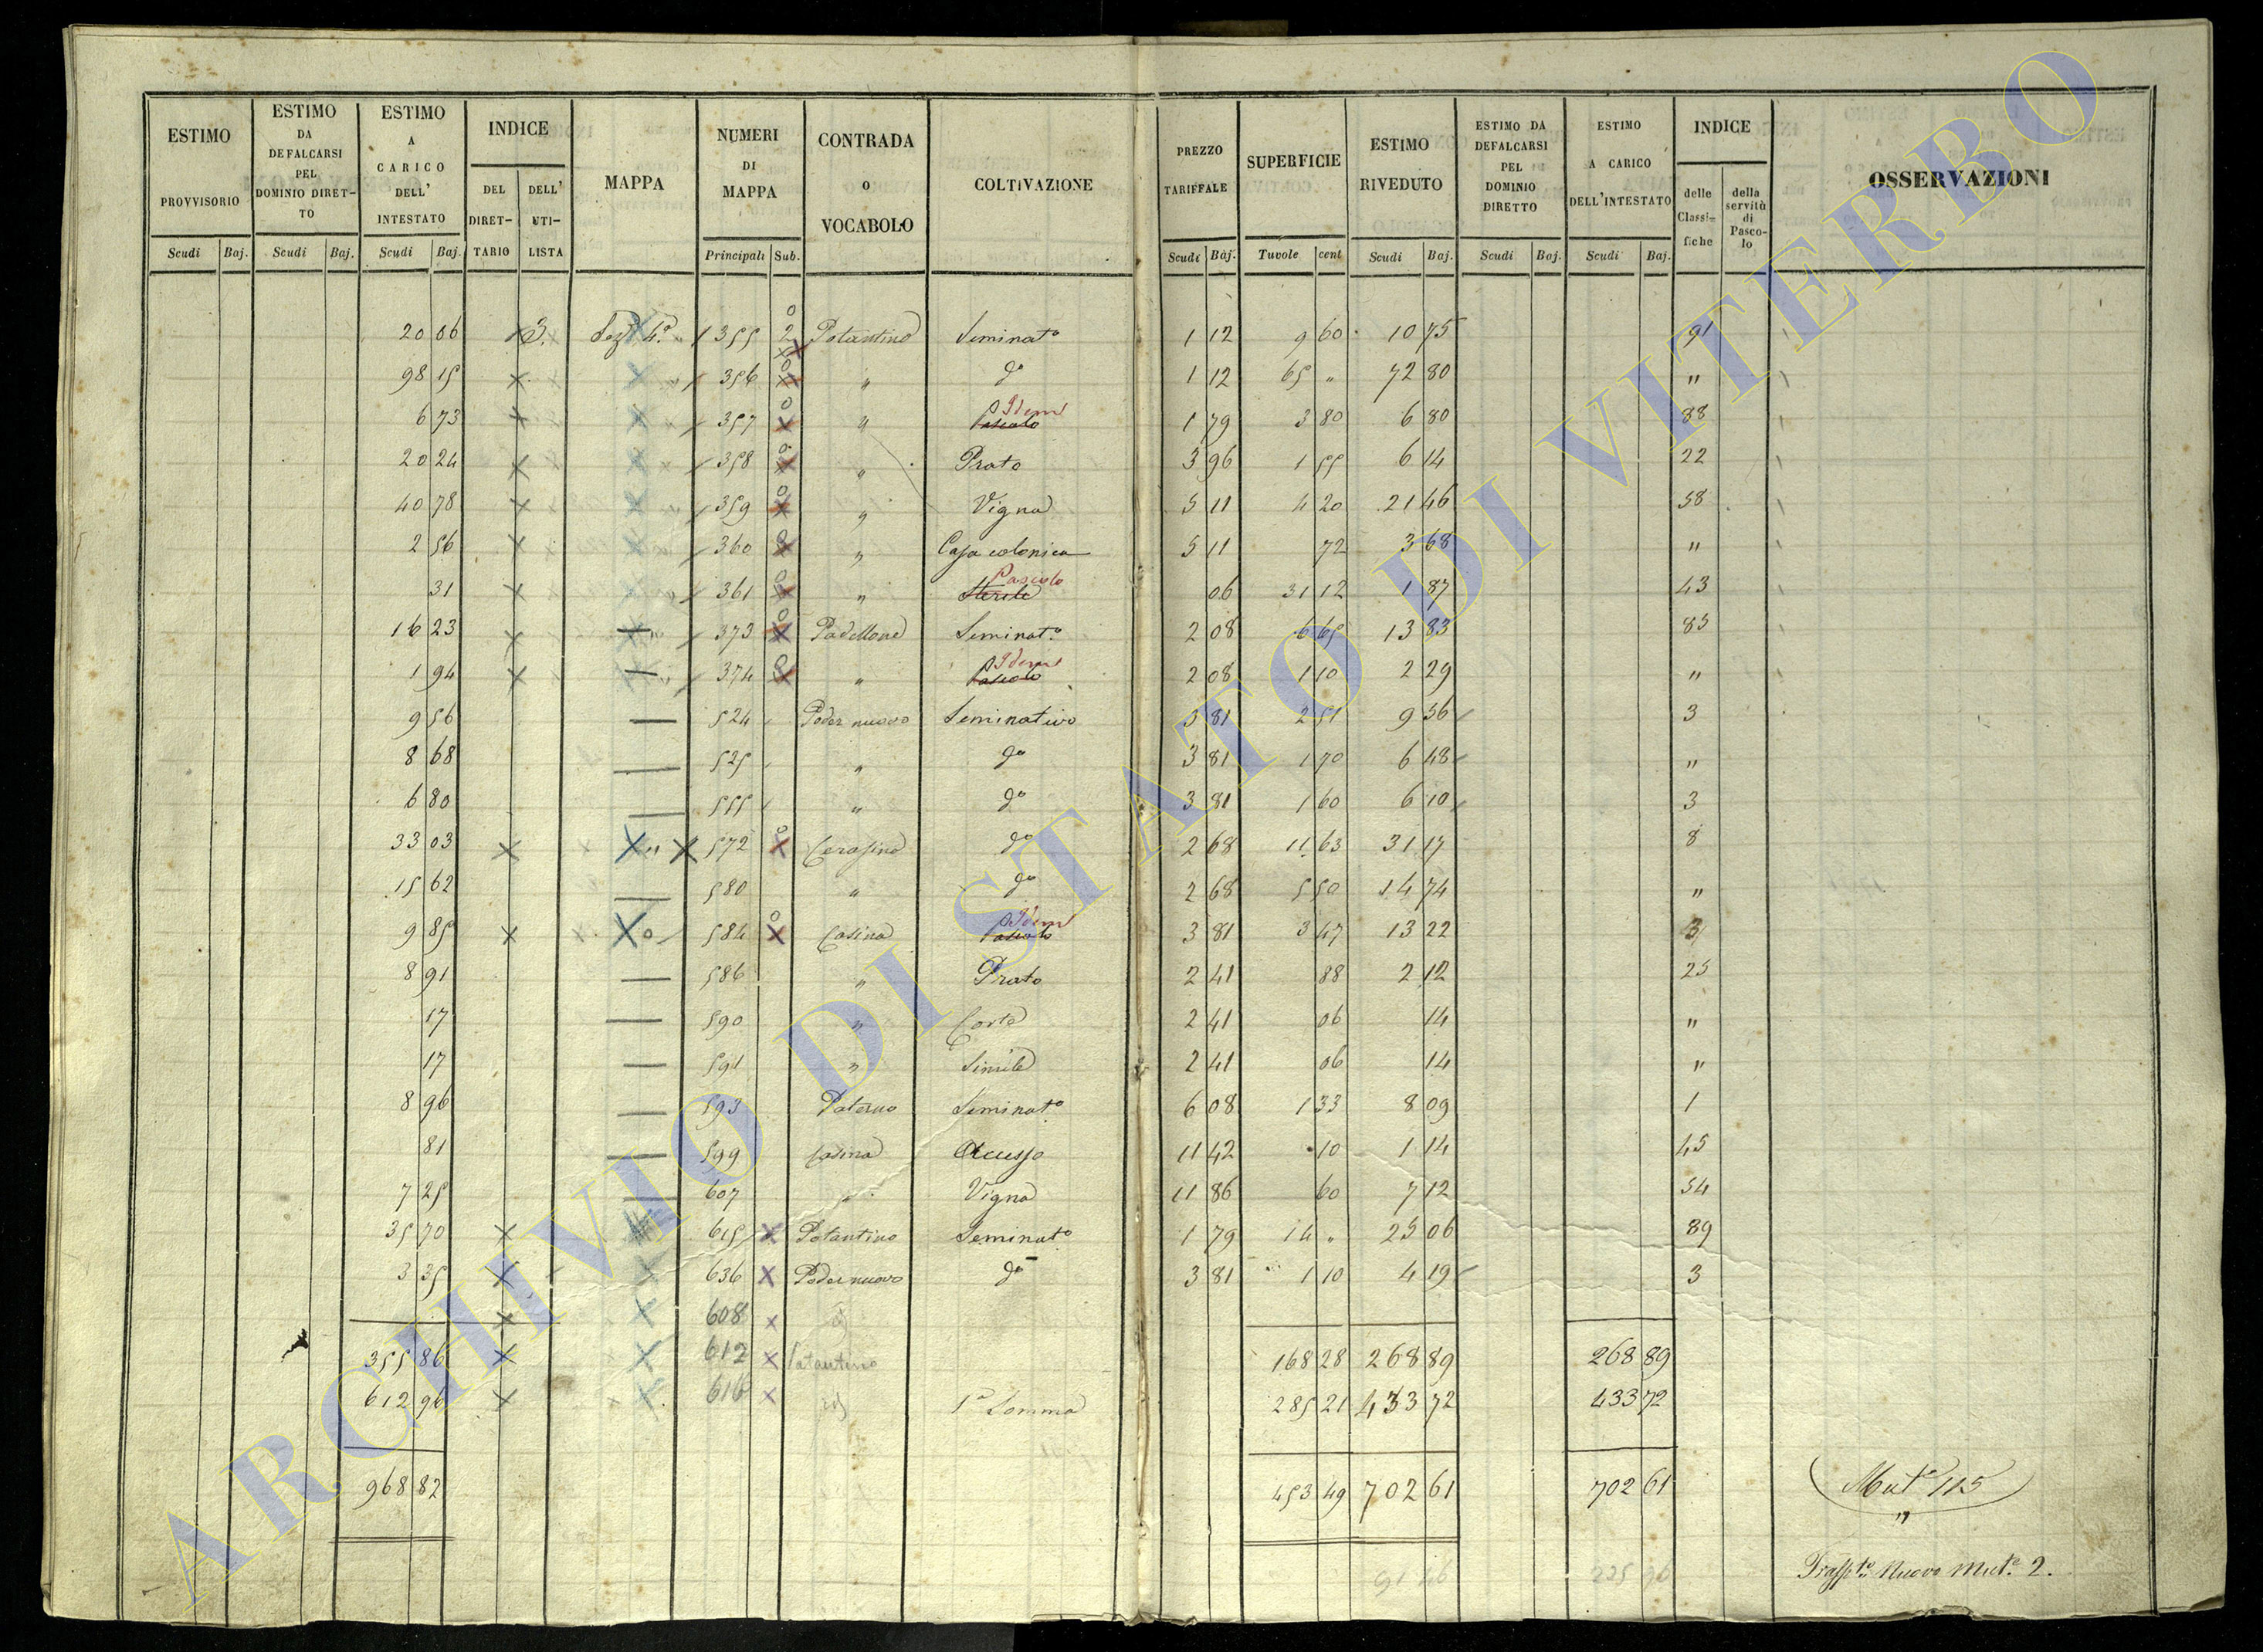 ESTIMO PROVVISORIO Scudi Baj.
ESTIMO DA DEFALCARSI PEL DOMINIO DIRETTO Scudi Baj.
ESTIMO A CARICO DELL' INTESTATO Scudi Baj.
INDICE DEL DIRETTARIO DELL' UTILISTA
MAPPA
NUMERI DI MAPPA Principali Sub.
CONTRADA O VOCABOLO
COLTIVAZIONE
PREZZO TARIFFALE Scudi Baj.
SUPERFICIE Tuvole cent
ESTIMO RIVEDUTO Scudi Baj.
ESTIMO DA DEFALCARSI PEL DOMINIO DIRETTO Scudi Baj.
ESTIMO A CARICO DELL'INTESTATO Scudi Baj.
INDICE delle Classifiche della servitù di Pascolo
OSSERVAZIONI
20 06 355 2 Potantino Seminato 1 12 9 60 10 75 91
98 15 x 356 " do 1 12 65 " 72 80 "
6 73 x 357 " Pascolo Idem 1 79 3 80 6 80 88
20 24 x 358 " Prato 3 96 1 55 6 14 22
40 78 x 359 " Vigna 5 11 4 20 21 46 58
2 56 x 360 " Casa colonica 5 11 72 3 68 "
31 x 361 " Sterile Pascolo 06 31 12 1 87 43
16 23 x 373 Padellone Seminato 2 08 6 65 13 83 85
1 94 x 374 " Pascolo Idem 2 08 1 10 2 29 "
9 56 524 Poder nuovo Seminativo 3 81 2 51 9 56 3
8 68 525 " do 3 81 1 70 6 48 "
6 80 555 " do 3 81 1 60 6 10 3
33 03 x 572 Cerasino do 2 68 11 63 31 17 8
15 62 580 " do 2 68 5 50 14 74 "
9 85 x 584 Casina Pascolo Idem 3 81 3 47 13 22 3
8 91 586 " Prato 2 41 88 2 12 25
17 590 " Corte 2 41 06 14 "
17 591 " Simile 2 41 06 14 "
8 96 593 Paterno Seminato 6 08 1 33 8 09 1
81 599 Casina Accesso 11 42 10 1 14 45
7 25 607 " Vigna 11 86 60 7 12 54
35 70 x 615 x Potantino Seminato 1 79 14 " 25 06 89
3 35 x 636 x Poder nuovo do 3 81 1 10 4 19 3
x 608 x
355 86 x 612 x Potantino 168 28 268 89 268 89
612 96 x 616 x 1a Somma 285 21 433 72 433 72
968 82 453 49 702 61 702 61 Muta 115
"
91 46 225 96 Trasspto Nuovo Muta 2.
ARCHIVIO DI STATO DI VITERBO